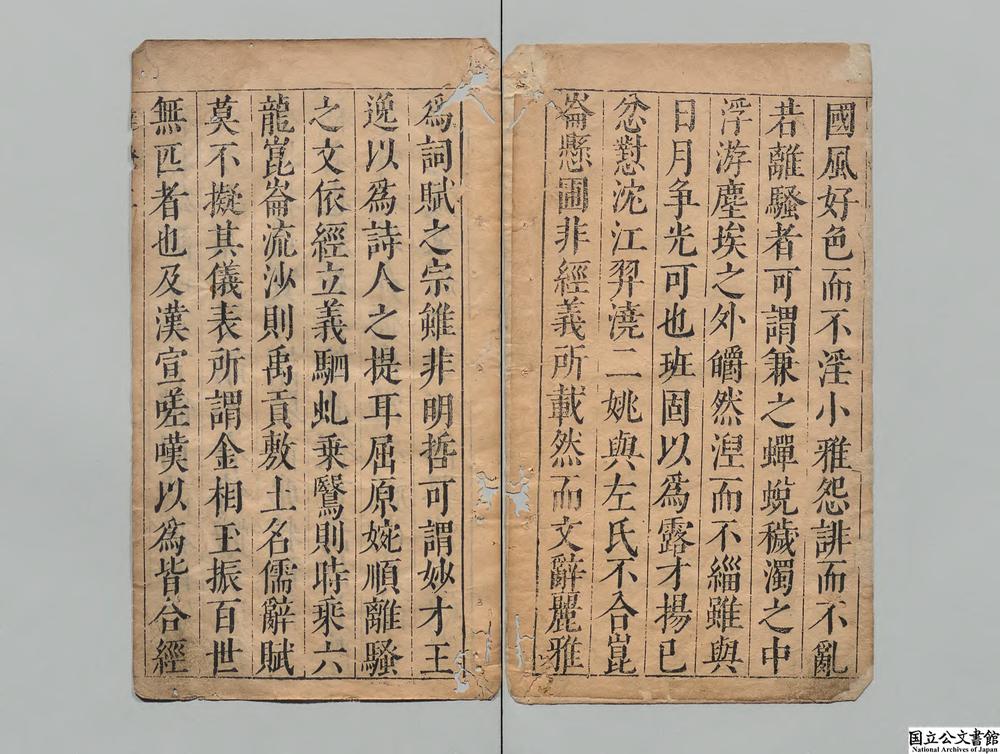 國風好色而不淫小雅怨誹而不亂
若離騷者可謂兼之蟬蛻穢濁之中
浮游塵埃之外皭然涅而不緇雖與
日月争光可也班固以爲露才揚已
忿懟沈江羿澆二姚與左氏不合崑
崙懸圃非經義所載然而文辭麗雅
爲詞賦之宗雖非明哲可謂妙才王
逸以爲詩人之提耳屈原婉順離騷
之文依經立義駟虬乗鷖則時乘六
龍崑崙流沙則禹貢敷土名儒辭賦
莫不擬其儀表所謂金相玉振百世
無匹者也及漢宣嗟嘆以爲皆合經
国立公文書館
National Archives of Japan